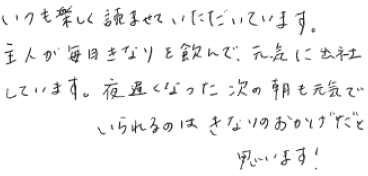 いつも楽しく読ませていただいています。
主人が毎日きなりを飲んで、元気に出社
しています。夜遅くなった次の朝も元気で
いられるのは きなりのおかげだと
思います！